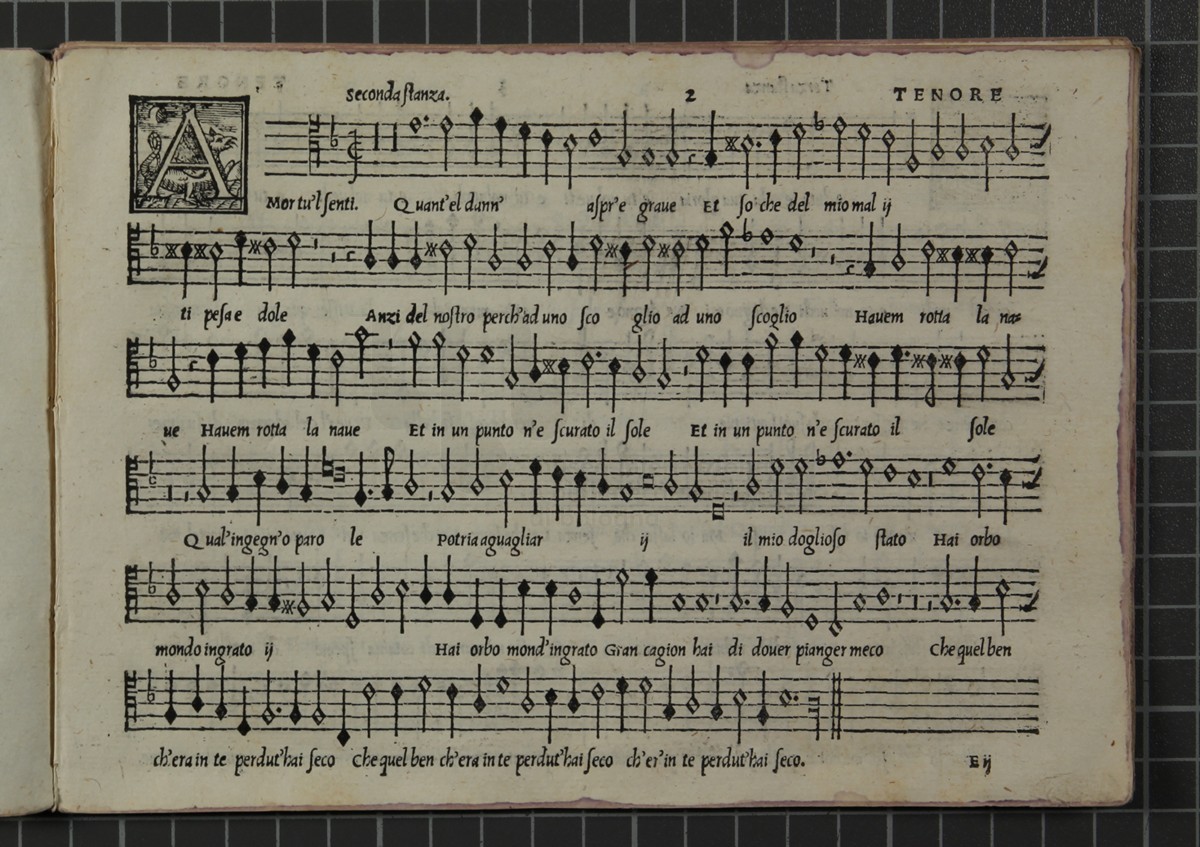 Seconda stanza. 2 TENORE
A Mor tu'l senti. Quant'el dann' aspr'e graue Et so che del mio mal ij
ti pesa e dole Anzi del nostro perch'ad uno sco glio ad uno scoglio Hauem rotta la na=
ue Hauem rotta la naue Et in un punto n'e scurato il sole Et in un punto n'e scurato il sole
Qual'ingegn'o paro le Potria aguagliar ij il mio doglioso stato Hai orbo
mondo ingrato ij Hai orbo mond'ingrato Gran cagion hai di douer pianger meco Che quel ben
ch'era in te perdut'hai seco Che quel ben ch'era in te perdut'hai seco ch'er'in te perdut'hai seco.
E ij